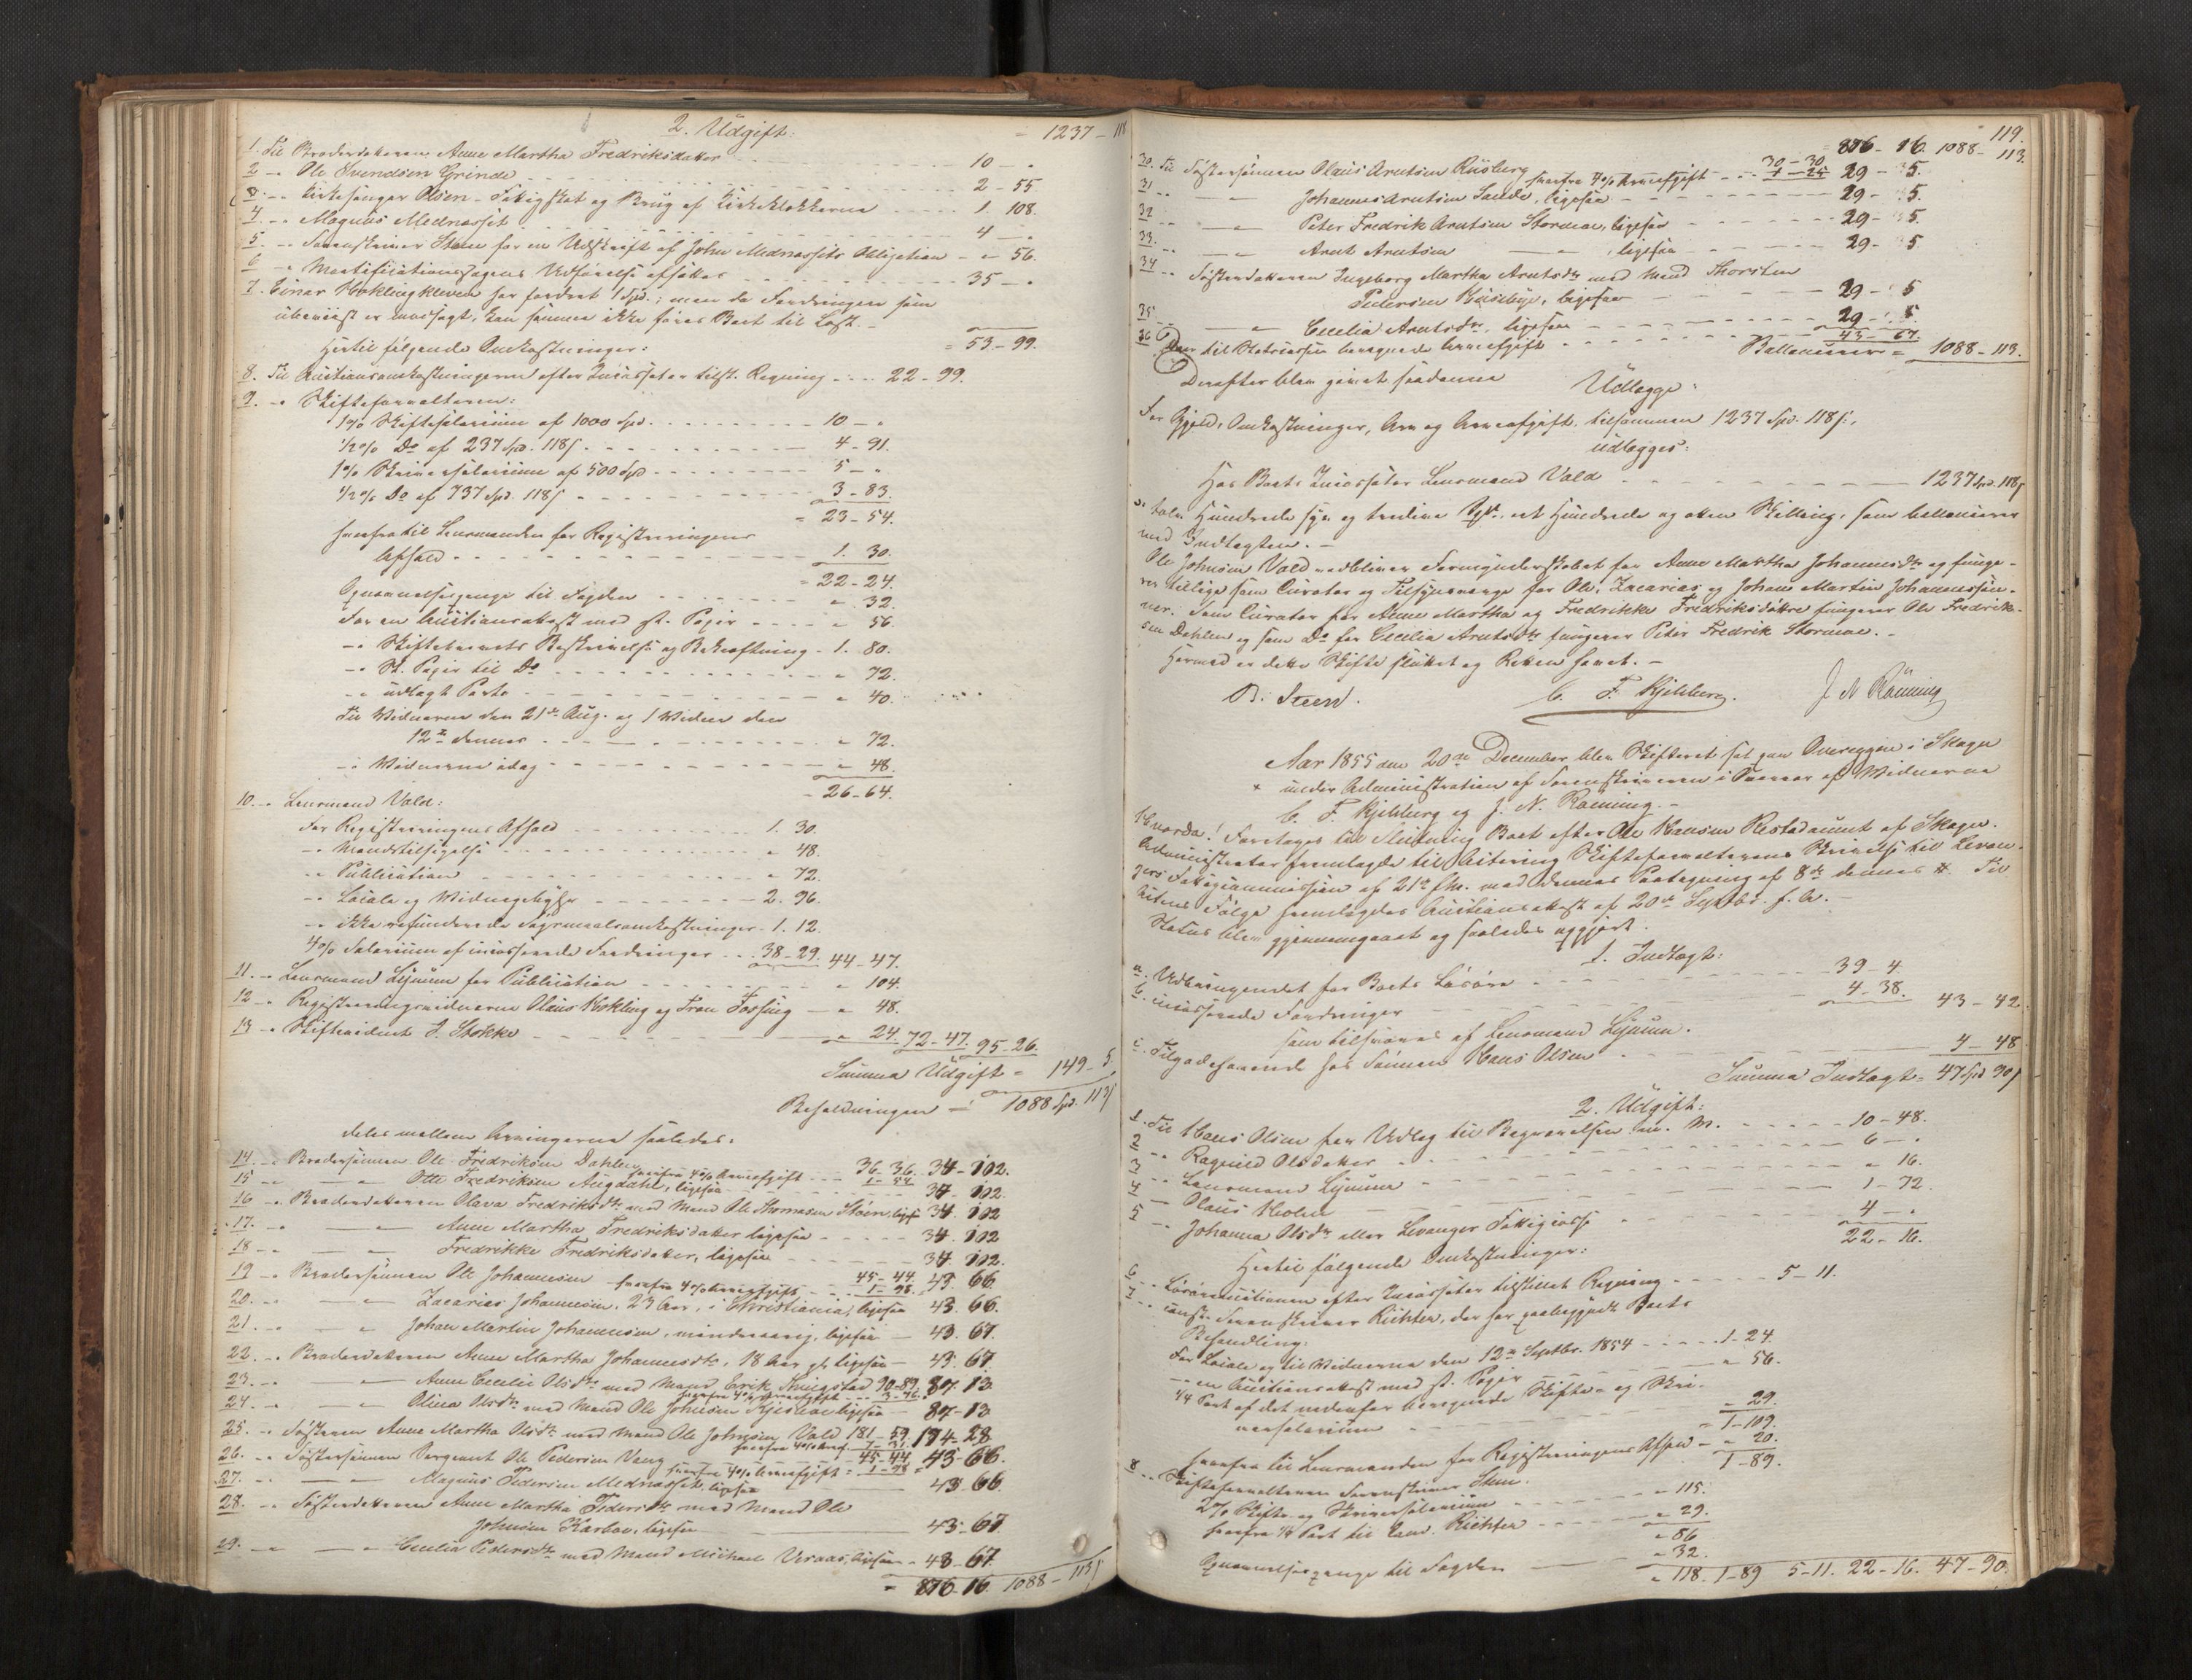 2. Udgift:
= 1237 - 118
1. Til Broderdatteren Anne Martha Fredriksdatter 10 - "
2 -" Ole Svendsen Grende 2 - 55
3. -" Kirkesanger Olsen - Fattigskat og Brug af Kirkeklokkerne 1. 108.
4. -" Magnus Mednasset 4 - "
5. -" Sorenskriver Steen for en Udskrift af John Mednassets Obligation - " 56.
6 -" Mortificationssagens Udførelse afsættes 35 - "
7. Einar Hoklingkleven har fordret 1 Spd.; men da Fordringen som
ubeviist er modsagt, kan samme ikke føres Boet til Last. -
= 53 - 99.
Hertil følgende Omkostninger:
8. Til Auctionsomkostningerne efter Incassator tilst. Regning 22 - 99.
9. -" Skifteforvalteren:
1% Skiftesalarium af 1000 Spd. 10 - "
1/2% Do af 237 Spd. 118 s 4 - 91.
1% Skriversalarium af 500 Spd 5 - "
1/2% Do af 737 Spd. 118 s 3 - 83.
= 23 - 54.
herfra til Lensmanden for Registreringens
Afhold 1. 30.
= 22 - 24.
Gjennemselsespenge til Fogden " 32.
For en Auctionsakt med st. Papir " 56
-" Skiftebrevets Beskrivelse og Bekræftning - 1. 80.
-" St. Papir til Do " 72.
-" udlagt Porto " 40.
Til Vidnerne den 21de Aug. og 1 Vidne den
12te dennes " 72.
-" Vidnerne idag " 48.
- 26 - 64.
10. -" Lensmand Vald:
For Registreringens Afhold 1. 30.
-" Mandstilsigelse " 48.
-" Publication " 72.
-" Locale og Vidnegebyhr 2. 96.
-" ikke refunderede Søgsmaalsomkostninger - 1. 12.
4% Salarium af incasserede Fordringer 38 - 29. 44 - 47.
11. -" Lensmand Lynum for Publication " 104.
12 -" Registreringsvidnerne Olaus Hokling og Tron Fossing - " 48.
13 -" Skiftevidnet J. Stokke " 24. 72 - 47. 95 - 26.
Summa Udgift = 149 - 5.
Beholdningen - 1088 Spd. 113 s
deles mellem Arvingerne saaledes:
14. -" Brodersønnen Ole Fredriksen Dahlen 36. 36. 34 - 102.
herfra 4% Arveafgift 1 - 54
15 -" -" Otte Fredriksen Augdahl, ligesaa 34 - 102.
16 -" Broderdatteren Olava Fredriksdtr med Mand Ole Thomasen Steen, liges 34. 102
17. -" -" Anne Martha Fredriksdatter ligesaa 34. 102
18 -" -" Fredrikke Fredriksdatter, ligesaa 34 102.
19 -" Brodersønnen Ole Johannesen 45 - 44. 43 66
herfra 4% Arveafgift 1 - 98.
20. -" -" Zacarias Johannesen, 23 Aar, i Christiania, ligesaa 43. 66.
21. -" -" Johan Martin Johannesen, mindreaarig, ligesaa 43. 67.
22. -" Broderdatteren Anne Martha Johannesdtr, 18 Aar gl. ligesaa 43. 67
23. -" -" Anne Cecilie Olsdtr med Mand Erik Tingstad 90 - 89. 87. 13
herfra 4% Arveafgift 3 - 76.
24. -" -" Olina Olsdtr med Mand Ole Johnsen ligesaa 87 - 13
25. -" Søsteren Anne Martha Olsdtr med Mand Ole Johnsen Vald 181 - 59. 174 - 28
herfra 4% Arveaf. 7 - 31.
26. -" Søstersønnen Sergeant Ole Pedersen Vang 45 - 44. 43 - 66.
herfra 4% Arveafgift 1 - 98
27. -" -" Magnus Pedersen Mednasset, ligesaa 43. 66
28. -" Søsterdatteren Anne Martha Pedersdtr med Mand Ole
Johnsen Karbov, ligesaa 43 - 67
29. -" -" Cecilia Pedersdtr med Mand Michael Ursaas, ligesaa - 43 - 67
= 876 - 16. 1088 - 113 s
119.
876 - 16. 1088 - 113.
30. Til Søstersønnen Olaus Arntsen Riisberg 30 - 30 29 - 5.
herfra 4% Arveafgift 1 - 25
31 -" Johannes Arntsen Sande, ligesaa 29 - 5.
32 -" Peter Fredrik Arntsen Stormoe, ligesaa 29 - 5.
33. -" Arnt Arntsen - " - ligesaa 29 - 5.
34 -" Søsterdatteren Ingeborg Martha Arntsdtr med Mand Thorsten
Pedersen Huseby, ligesaa 29 - 5
35. -" Cecilia Arntsdtr, ligesaa 29 - 5.
36. Den til Statscassen beregnede Arveafgift 43 - 67.
Ballancerer = 1088 - 113.
Derefter blev gjort saadanne
Udlægge:
For Gjeld, Omkostninger, Arv og Arveafgift, tilsammen 1237 Spd. 118 s.,
udlægges:
Hos Boets Incassator Lensmand Vald 1237 Spd. 118 s
- tolv Hundrede syv og tredive Spd. et Hundrede og atten Skilling, som ballancerer
med Indtægten. -
Ole Johnsen Vald vedbliver Formynderskabet for Anne Martha Johannesdtr og funge-
rer tillige som Curator og Tilsynsværge for Ole, Zacarias og Johan Martin Johannessøn-
ner. Som Curator for Anne Martha og Fredrikke Fredriksdøttre fungerer Ole Fredrik-
sen Dahlen og som Do for Cecilia Arntsdtr fungerer Peter Fredrik Stormoe. -
Hermed er dette Skifte sluttet og Retten hævet. -
B. Steen. C. F. Kjelberg. J N Rönning
Aar 1855 den 20de December blev Skifteret sat paa Overeggen i Skogn
under Administration af Sorenskriveren i Overvær af Vidnerne
C. F. Kjelberg og J. N. Rönning. -
Hvorda! Foretoges til Slutning Boet efter Ole Hansen Restadaunet af Skogn.
Administrator fremlagde til Acitering Skifteforvalterens Skrivelse til Levan-
gers Fattigcommission af 21de f. M. med dennes Paategning af 8de dennes #. Til
Actens Følge fremlagdes Auctionsakt af 20de Septbr. f. A. -
Status blev gjennemgaaet og saaledes opgjort.
1. Indtægt:
a. Udbringendet for Boets Løsøre 39 - 4.
b. incasserede Fordringer 4 - 38. 43 - 42.
som tilsvares af Lensmand Lynum.
c. Tilgodehavende hos Sønnen Hans Olsen 4 - 48
Summa Indtægt = 47 Spd 90 s
2. Udgift:
1. Til Hans Olsen for Udlæg til Begravelsen m. M. 10 - 48.
2 -" Ragnild Olsdatter 6 - "
3 -" Lensmand Lynum " 16.
4 -" Olaus Holm 1 - 72.
5 -" Johanna Olsdtr eller Levanger Fattigcasse 4 - "
22 - 16.
Hertil følgende Omkostninger:
6 -" Løsøreauctionen efter Incassator tilstillet Regning 5 - 11.
7 -" const. Sorenskriver Richter, der har paabegyndt Boets
Behandling:
For Locale og til Vidnerne den 12te Septbr. 1854 1 - 24.
-" en Auctionsakt med st. Papir " 56.
1/4 Part af det nedenfor beregnede Skifte- og Skri-
versalarium " 29.
= 1 - 109.
herfra til Lensmanden for Registreringens Afhold - " 20.
1 - 89.
8 -" Skifteforvalteren Sorenskriver Steen:
2% Skifte- og Skriversalarium " 115.
herfra 1/4 Part til Cand. Richter " 29.
" 86
Gjennemselsespenge til Fogden " 32.
" 118. 1 - 89 5 - 11. 22 - 16. 47 - 90.